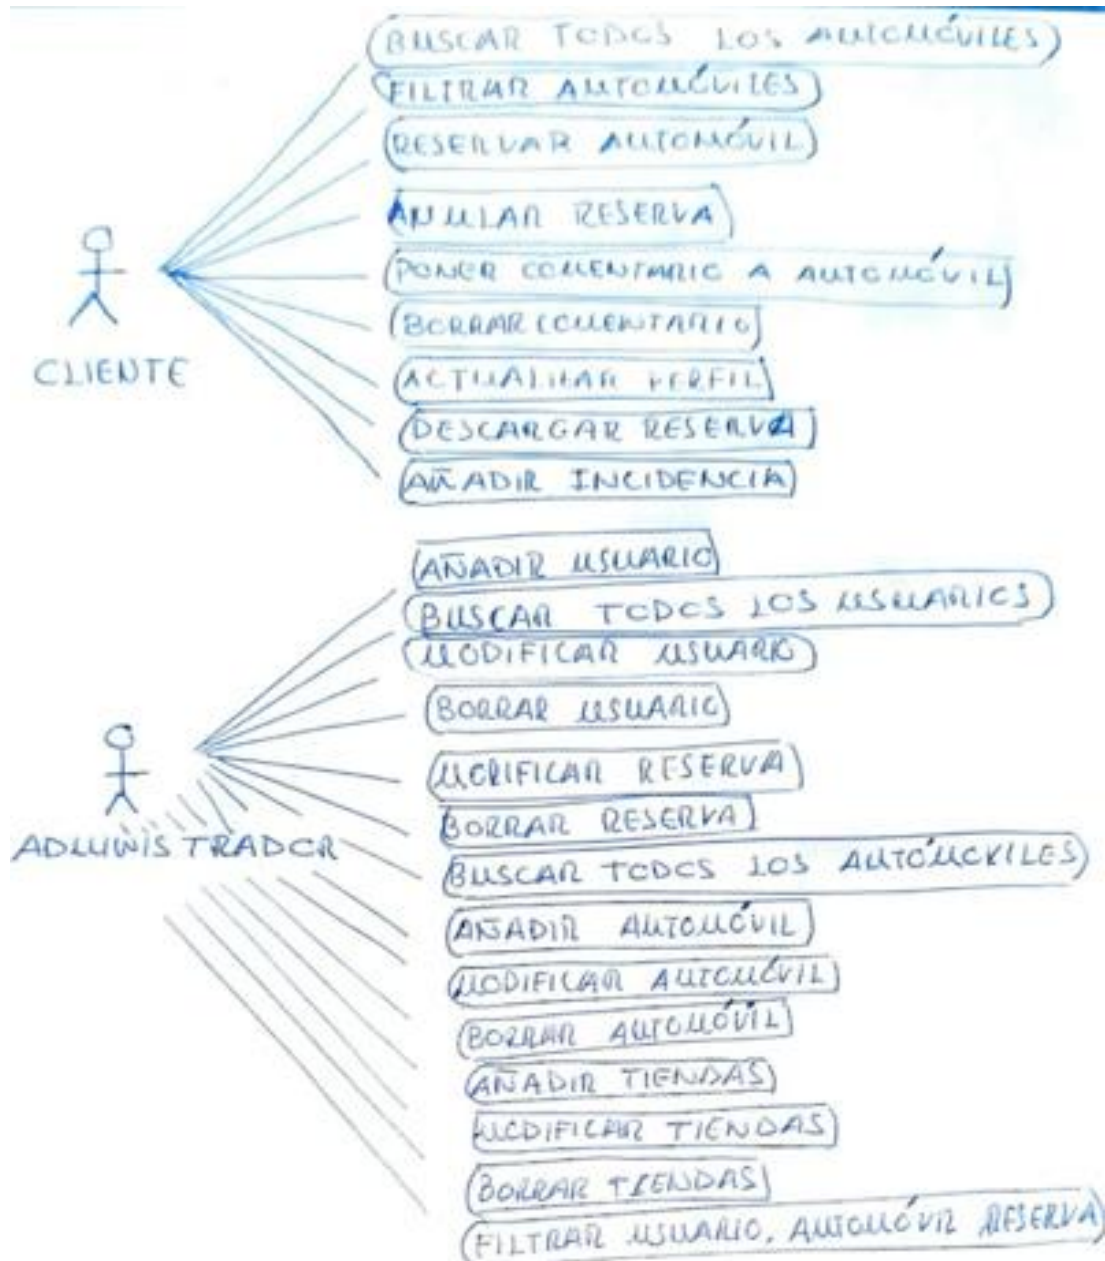 BUSCAR TODOS LOS AUTOMÓVILES
FILTRAR AUTOMÓVILES
RESERVAR AUTOMÓVIL
ANULAR RESERVA
PONER COMENTARIO A AUTOMÓVIL
BORRAR COMENTARIO
ACTUALIZAR PERFIL
DESCARGAR RESERVA
AÑADIR INCIDENCIA
CLIENTE
AÑADIR USUARIO
BUSCAR TODOS LOS USUARIOS
MODIFICAR USUARIO
BORRAR USUARIO
MODIFICAR RESERVA
BORRAR RESERVA
BUSCAR TODOS LOS AUTÓMOVILES
AÑADIR AUTOMÓVIL
MODIFICAR AUTOMÓVIL
BORRAR AUTOMÓVIL
AÑADIR TIENDAS
MODIFICAR TIENDAS
BORRAR TIENDAS
FILTRAR USUARIO, AUTOMÓVIL RESERVA
ADMINISTRADOR